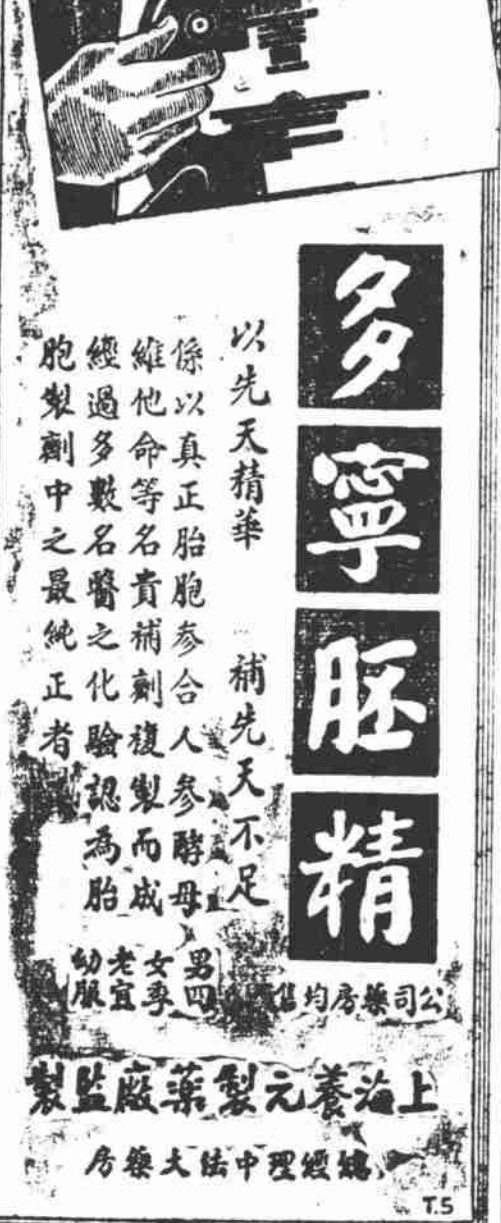 多寧胚精
以先天精華 補先天不足
係以真正胎胞參合人參酵母
維他命等名貴補劑複製而成
經過多數名醫之化驗認為胎
胞製劑中之最純正者
男四
女季
老宜
幼服
公司藥房均售
上海養元製藥廠監製
總經理中法大藥房
T.5